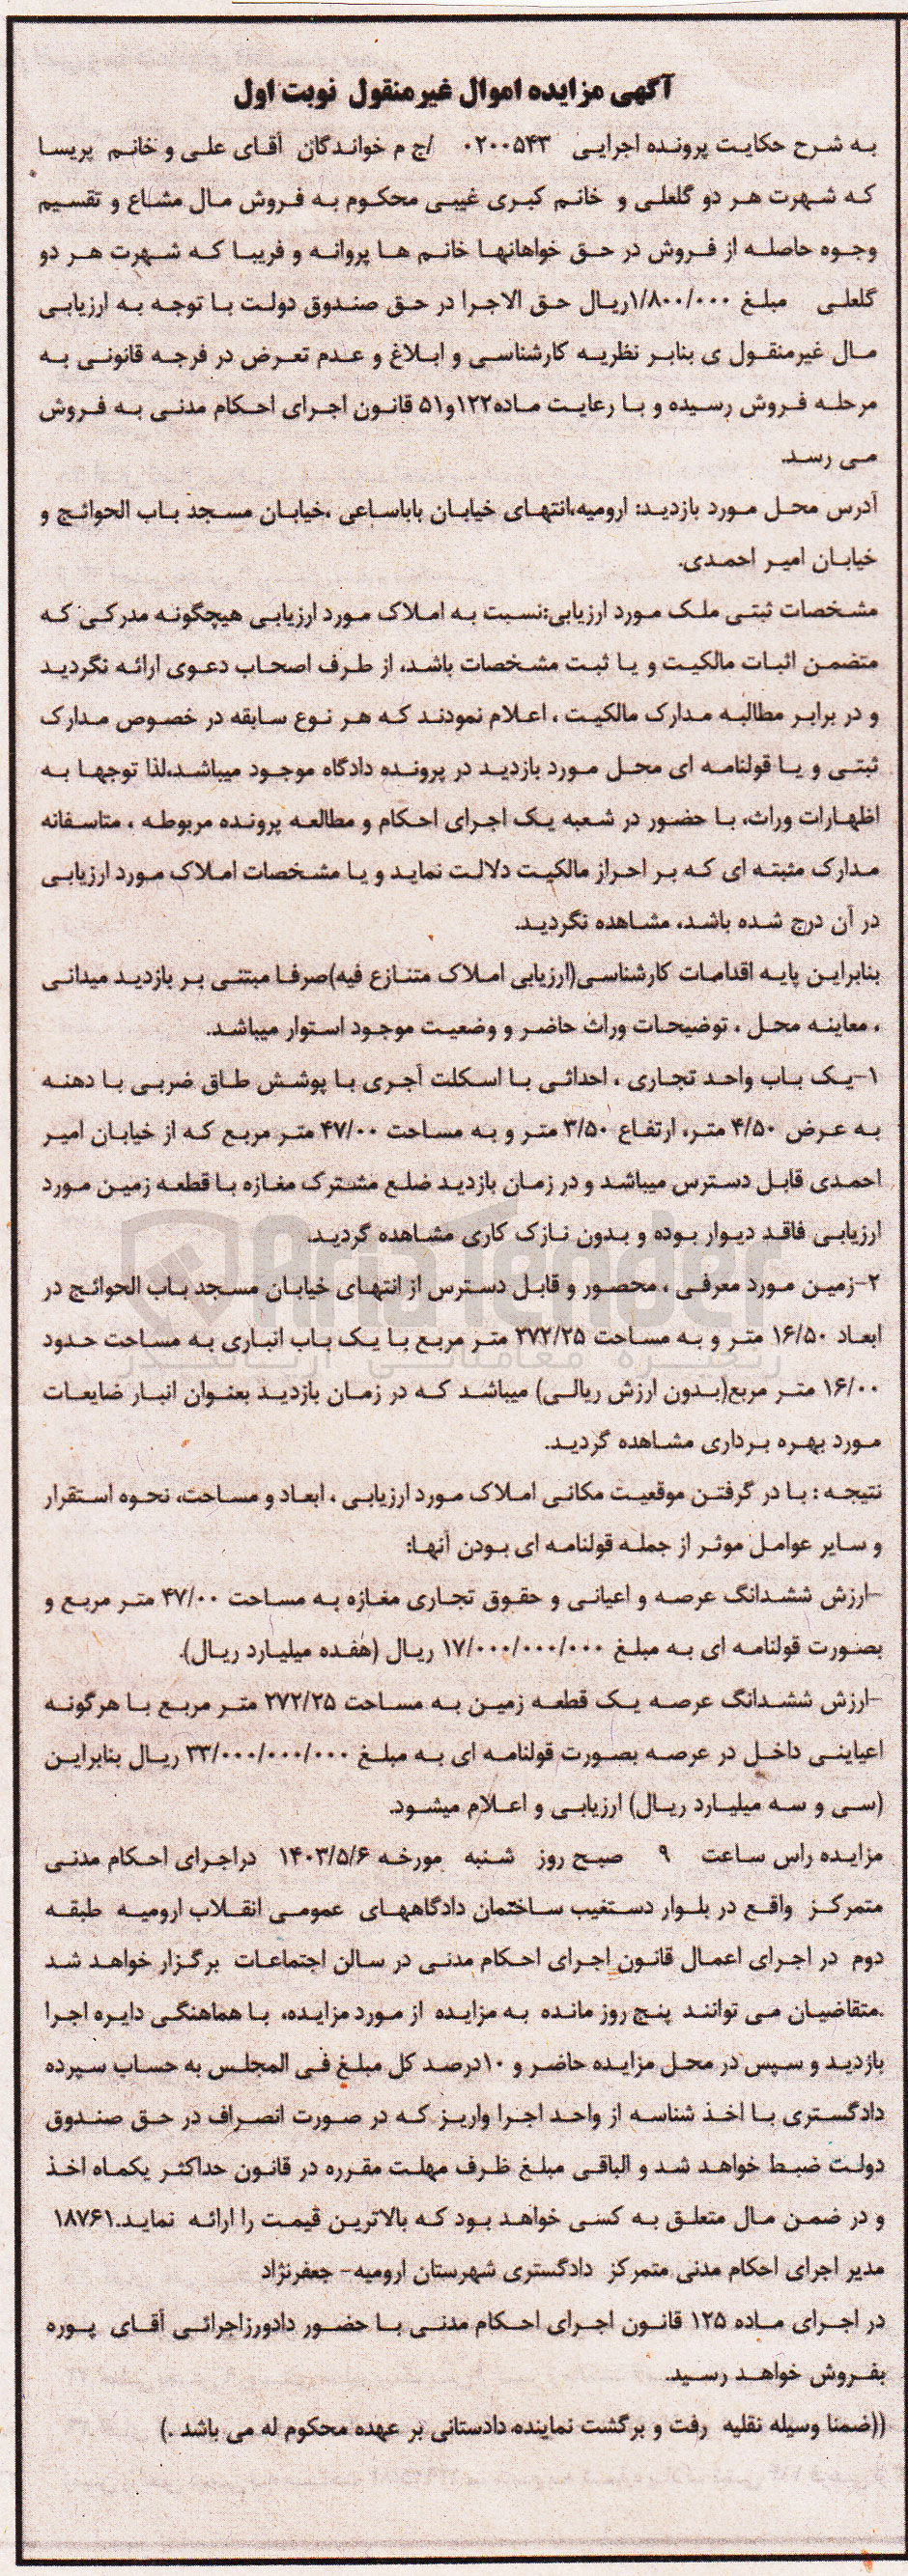 آگهی مزایده اموال غیرمنقول نوبت اول
به شرح حکایت پرونده اجرایی ۰۲۰۰۵۴۳ /ج م خواندگان آقای علی و خانم پریسا
که شهرت هر دو گلعلی و خانم کبری غیبی محکوم به فروش مال مشاع و تقسیم
وجوه حاصله از فروش در حق خواهانها خانم ها پروانه و فریبا که شهرت هر دو
گلعلی مبلغ ۱/۸۰۰/۰۰۰ریال حق الاجرا در حق صندوق دولت با توجه به ارزیابی
مال غیرمنقول ی بنابر نظریه کارشناسی و ابلاغ و عدم تعرض در فرجه قانونی به
مرحله فروش رسیده و با رعایت ماده۱۲۲و۵۱ قانون اجرای احکام مدنی به فروش
می رسد.
آدرس محل مورد بازدید: ارومیه،انتهای خیابان باباساعی ،خیابان مسجد باب الحوائج و
خیابان امیر احمدی.
مشخصات ثبتی ملک مورد ارزیابی:نسبت به املاک مورد ارزیابی هیچگونه مدرکی که
متضمن اثبات مالکیت و یا ثبت مشخصات باشد، از طرف اصحاب دعوی ارائه نگردید
و در برابر مطالبه مدارک مالکیت ، اعلام نمودند که هر نوع سابقه در خصوص مدارک
ثبتی و یا قولنامه ای محل مورد بازدید در پرونده دادگاه موجود میباشد،لذا توجها به
اظهارات وراث، با حضور در شعبه یک اجرای احکام و مطالعه پرونده مربوطه ، متاسفانه
مدارک مثبته ای که بر احراز مالکیت دلالت نماید و یا مشخصات املاک مورد ارزیابی
در آن درج شده باشد، مشاهده نگردید.
بنابراین پایه اقدامات کارشناسی(ارزیابی املاک متنازع فیه)صرفا مبتنی بر بازدید میدانی
، معاینه محل ، توضیحات وراث حاضر و وضعیت موجود استوار میباشد.
۱-یک باب واحد تجاری ، احداثی با اسکلت آجری با پوشش طاق ضربی با دهنه
به عرض ۴/۵۰ متر، ارتفاع ۳/۵۰ متر و به مساحت ۴۷/۰۰ متر مربع که از خیابان امیر
احمدی قابل دسترس میباشد و در زمان بازدید ضلع مشترک مغازه با قطعه زمین مورد
ارزیابی فاقد دیوار بوده و بدون نازک کاری مشاهده گردید.
AriaTender
۲-زمین مورد معرفی ، محصور و قابل دسترس از انتهای خیابان مسجد باب الحوائج در
ابعاد ۱۶/۵۰ متر و به مساحت ۲۷۲/۲۵ متر مربع با یک باب انباری به مساحت حدود
۱۶/۰۰ متر مربع(بدون ارزش ریالی) میباشد که در زمان بازدید بعنوان انبار ضایعات
مورد بهره برداری مشاهده گردید.
نتیجه : با در گرفتن موقعیت مکانی املاک مورد ارزیابی ، ابعاد و مساحت، نحوه استقرار
و سایر عوامل موثر از جمله قولنامه ای بودن آنها:
-ارزش ششدانگ عرصه و اعیانی و حقوق تجاری مغازه به مساحت ۴۷/۰۰ متر مربع و
بصورت قولنامه ای به مبلغ ۱۷/۰۰۰/۰۰۰/۰۰۰ ریال (هفده میلیارد ریال).
-ارزش ششدانگ عرصه یک قطعه زمین به مساحت ۲۷۲/۲۵ متر مربع با هرگونه
اعیاینی داخل در عرصه بصورت قولنامه ای به مبلغ ۳۳/۰۰۰/۰۰۰/۰۰۰ ریال بنابراین
(سی و سه میلیارد ریال) ارزیابی و اعلام میشود.
مزایده راس ساعت ۹ صبح روز شنبه مورخه ۱۴۰۳/۵/۶ دراجرای احکام مدنی
متمرکز واقع در بلوار دستغیب ساختمان دادگاههای عمومی انقلاب ارومیه طبقه
دوم در اجرای اعمال قانون اجرای احکام مدنی در سالن اجتماعات برگزار خواهد شد
.متقاضیان می توانند پنج روز مانده به مزایده از مورد مزایده، با هماهنگی دایره اجرا
بازدید و سپس در محل مزایده حاضر و ۱۰درصد کل مبلغ فی المجلس به حساب سپرده
دادگستری با اخذ شناسه از واحد اجرا واریز که در صورت انصراف در حق صندوق
دولت ضبط خواهد شد و الباقی مبلغ ظرف مهلت مقرره در قانون حداکثر یکماه اخذ
و در ضمن مال متعلق به کسی خواهد بود که بالاترین قیمت را ارائه نماید.۱۸۷۶۱
مدیر اجرای احکام مدنی متمرکز دادگستری شهرستان ارومیه- جعفرنژاد
در اجرای ماده ۱۲۵ قانون اجرای احکام مدنی با حضور دادورزاجرائی آقای پوره
بفروش خواهد رسید.
((ضمنا وسیله نقلیه رفت و برگشت نماینده دادستانی بر عهده محکوم له می باشد .)